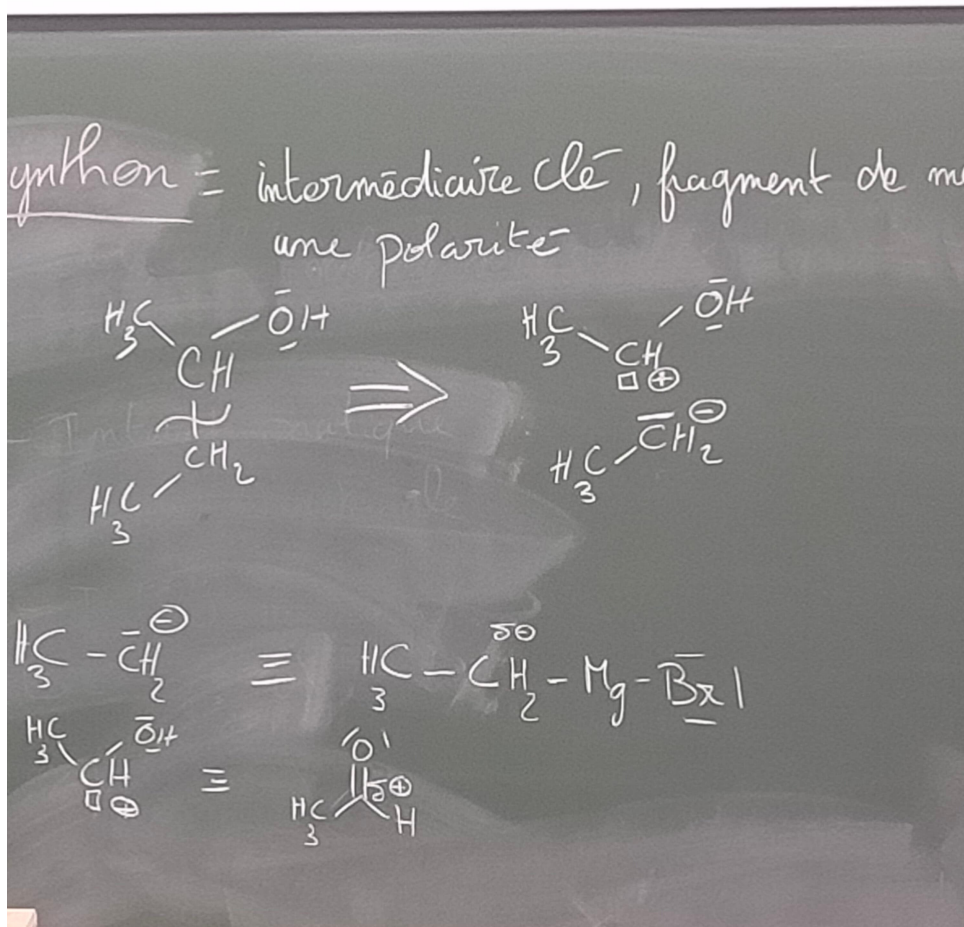 ynthon = intermédiaire clé, fragment de m
une polarité
H₃C CH OH ⇒ H₃C CH ⊕ OH
CH₂ H₃C H₃C CH₂ ⊖
H₃C - CH₂ ⊖ ≡ H₃C - CH₂ - Mg - Br δ⊖
H₃C CH OH ⊕ ≡ H₃C O H δ⊕